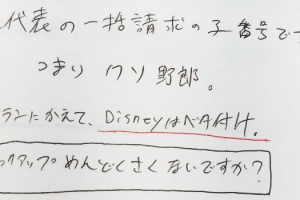 代表の一括請求の子番号です
つまり クソ野郎。
ランにかえて、Disneyはベタ付け。
ックアップめんどくさくないですか?